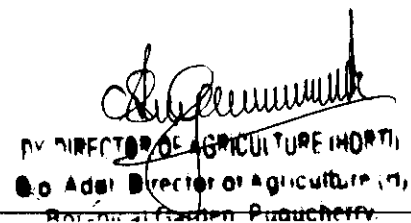 DY DIRECTOR OF AGRICULTURE (HORT),
O/o Addl Director of Agriculture (H),
Botanical Garden Puducherry